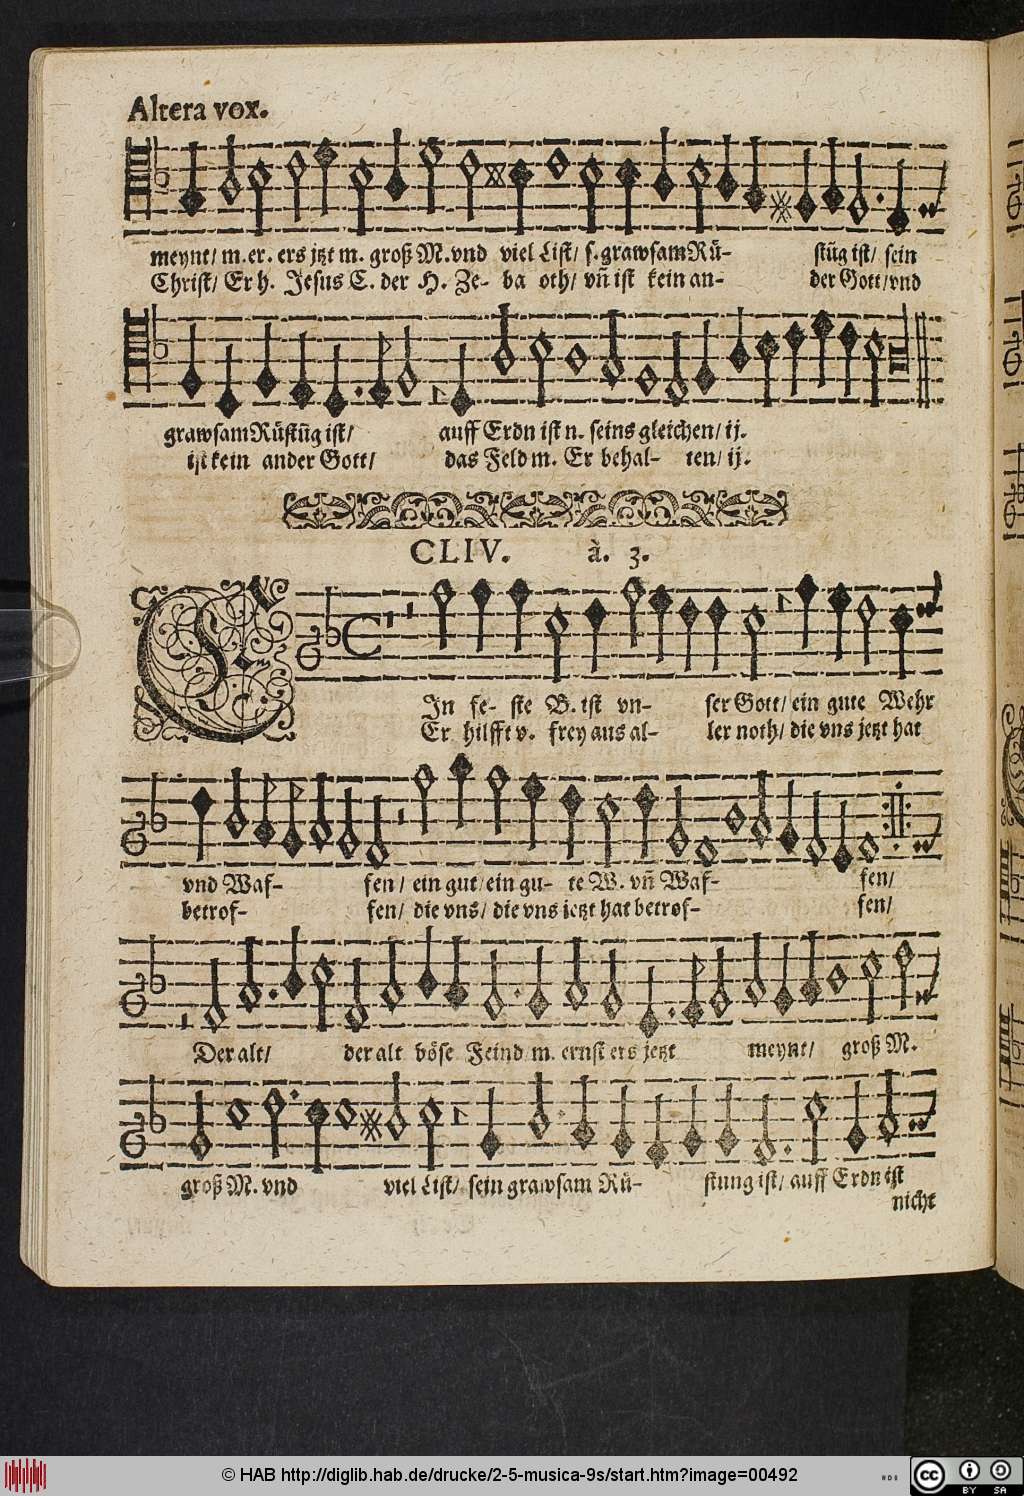 Altera vox.
meynt/ m. er. ers jtzt m. groß M. vnd viel List/ s. grawsam Rü- stũg ist/ sein
Christ/ Er h. Jesus C. der H. Ze- ba oth/ vñ ist kein an- der Gott/ vnd
grawsam Rüstũg ist/ auff Erdn ist n. seins gleichen/ ij.
ist kein ander Gott/ das Feld m. Er behal- ten/ ij.
CLIV. à. 3.
EIn fe- ste B. ist vn- ser Gott/ ein gute Wehr
Er hilfft v. frey aus al- ler noth/ die vns jetzt hat
vnd Waf- fen/ ein gut/ ein gu- te W. vñ Waf- fen/
betrof- fen/ die vns/ die vns jetzt hat betrof- fen/
Der alt/ der alt böse Feind m. ernst ers jetzt meynt/ groß M.
groß M. vnd viel List/ sein grawsam Rü- stung ist/ auff Erdn ist
nicht
© HAB http://diglib.hab.de/drucke/2-5-musica-9s/start.htm?image=00492
cc BY SA